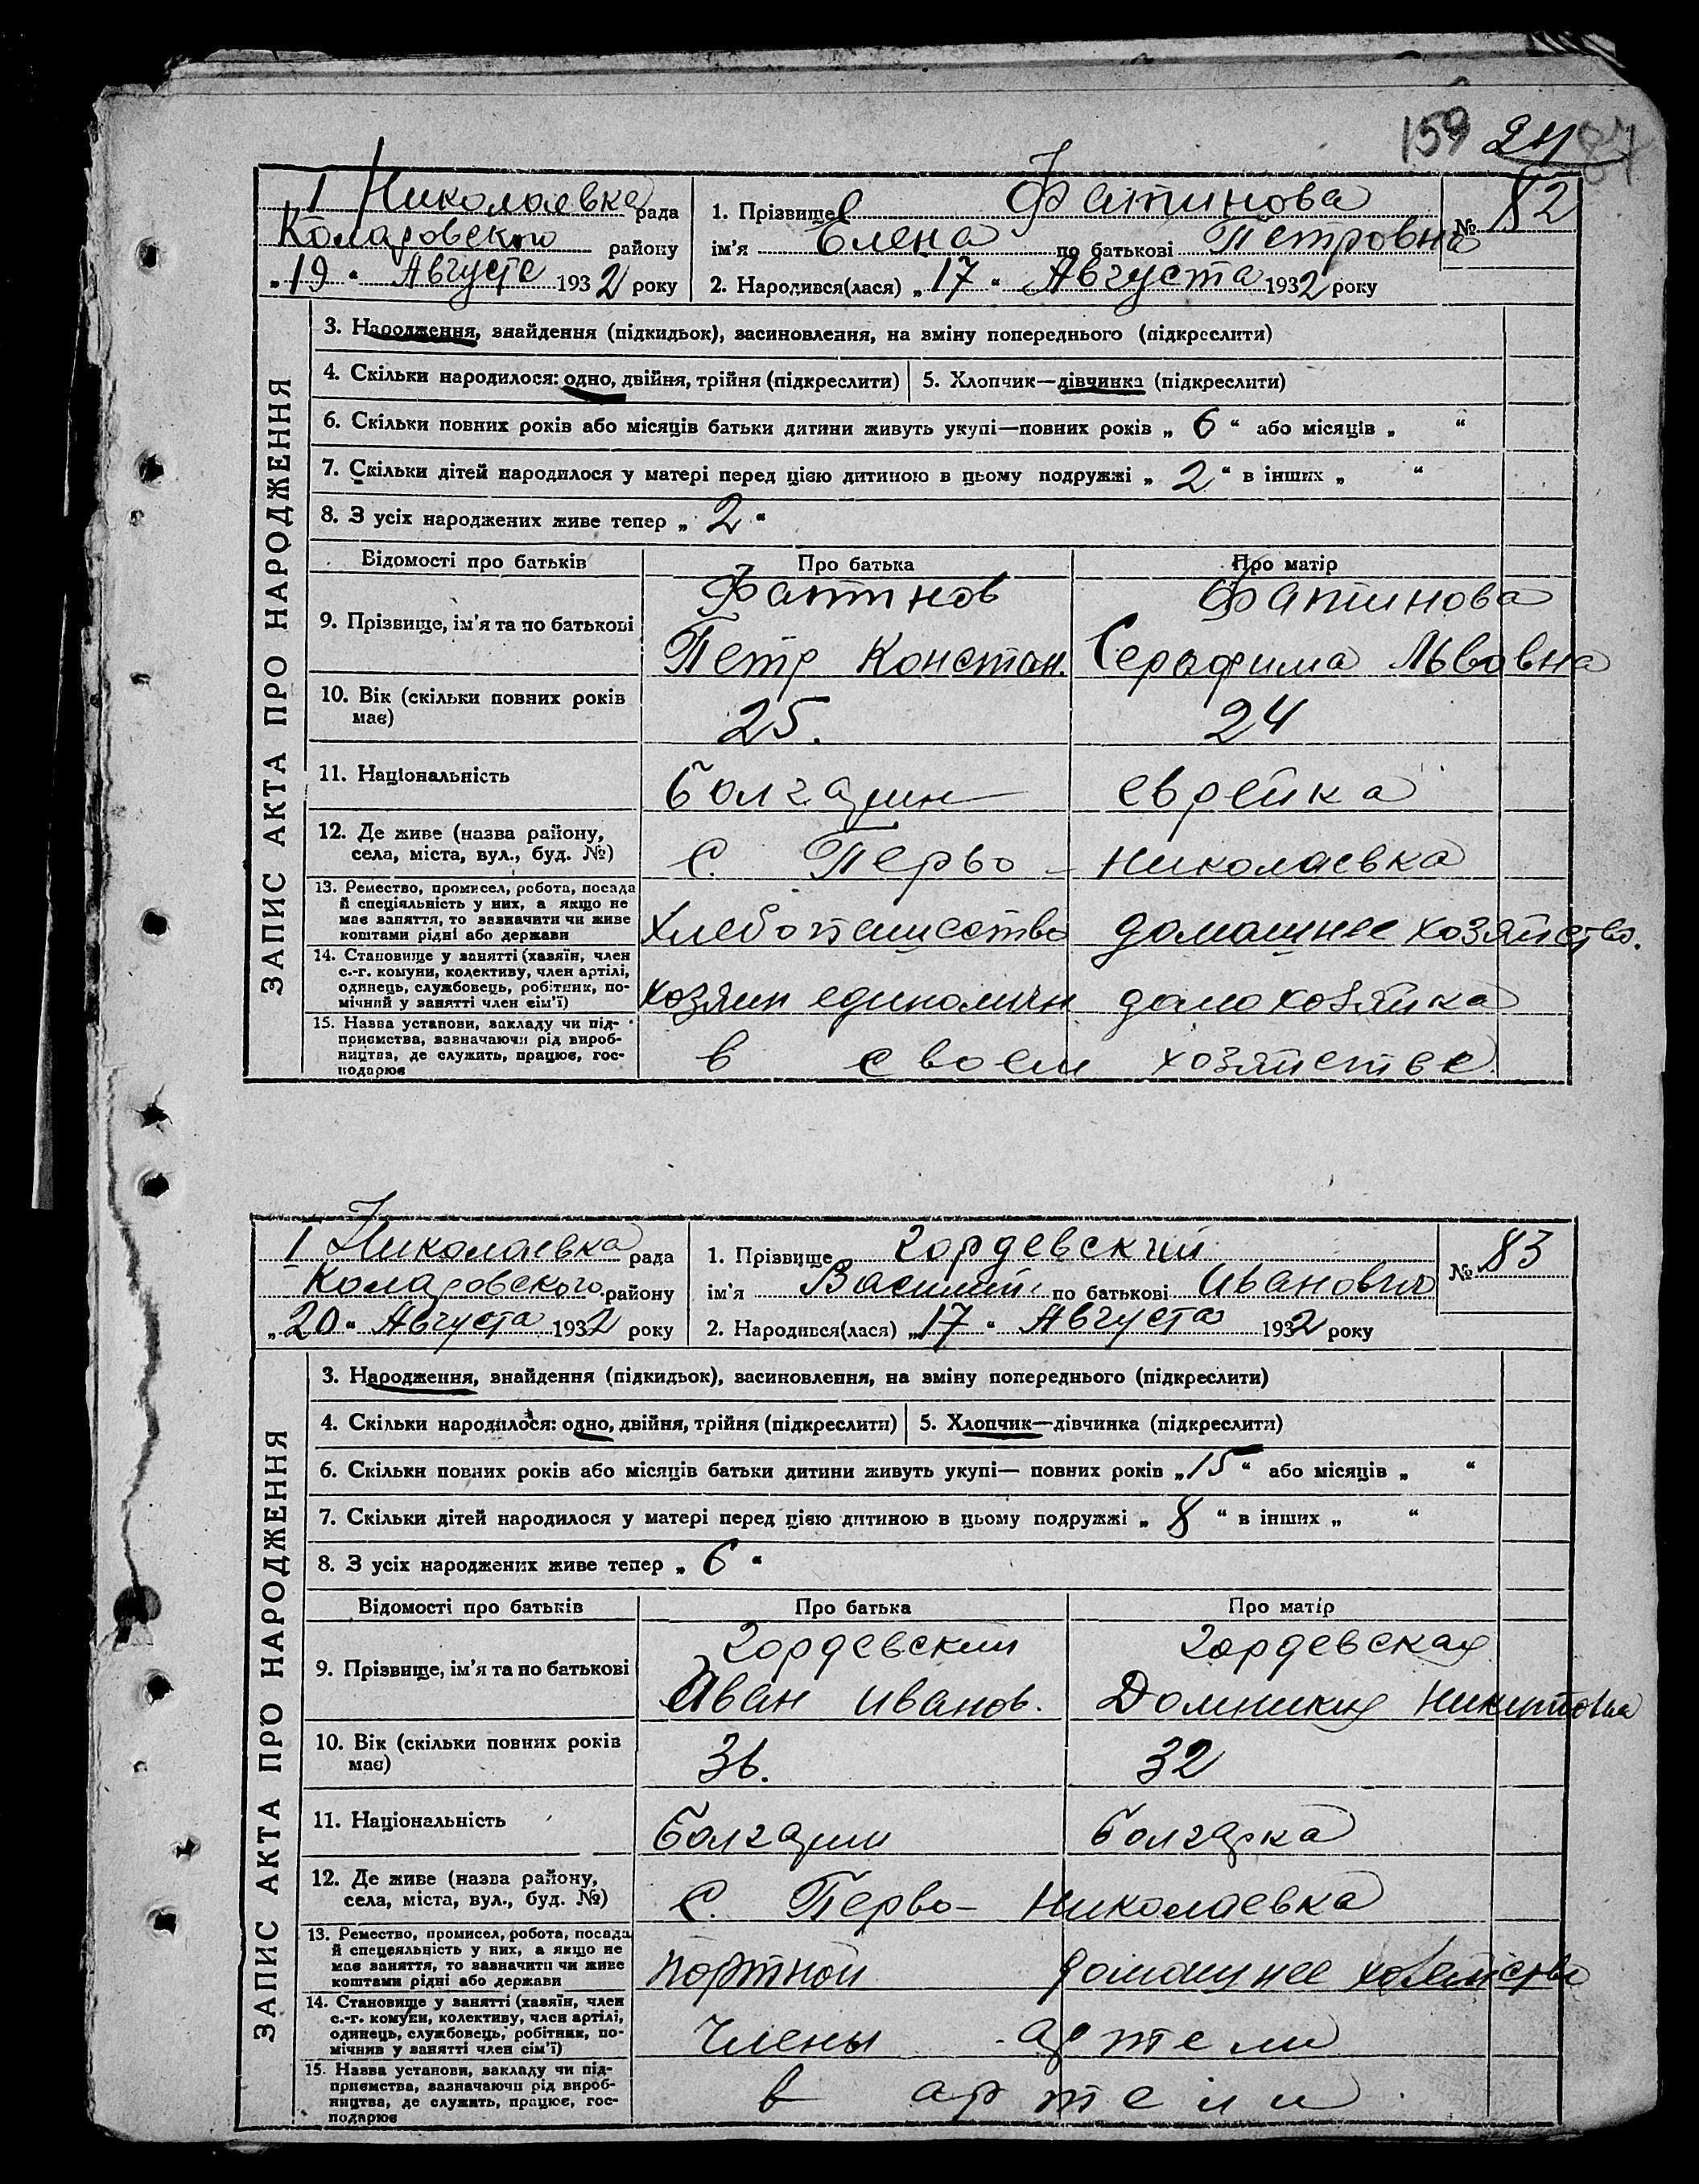 159 24
I Николаевка рада
Коларовского району
„19“ Августа 1932 року
1. Прізвище Фатинова
№ 82
ім'я Елена по батькові Петровна
2. Народився(лася) „17“ Августа 1932 року
ЗАПИС АКТА ПРО НАРОДЖЕННЯ
3. Народження, знайдення (підкидьок), засиновлення, на зміну попереднього (підкреслити)
4. Скільки народилося: одно, двійня, трійня (підкреслити)
5. Хлопчик—дівчинка (підкреслити)
6. Скільки повних років або місяців батьки дитини живуть укупі—повних років „ 6 “ або місяців „ “
7. Скільки дітей народилося у матері перед цією дитиною в цьому подружжі „ 2 “ в інших „ “
8. З усіх народжених живе тепер „ 2 “
Відомості про батьків
Про батька
Про матір
9. Прізвище, ім'я та по батькові
Фатинов
Петр Констан.
Фатинова
Серафима Львовна
10. Вік (скільки повних років
має)
25.
24
11. Національність
болгарин
еврейка
12. Де живе (назва району,
села, міста, вул., буд. №)
С. Перво - Николаевка
13. Ремество, промисел, робота, посада
й спеціяльність у них, а якщо не
має заняття, то зазначити чи живе
коштами рідні або держави
хлебопашество
домашнее хозяйство.
14. Становище у занятті (хазяїн, член
с.-г. комуни, колективу, член артілі,
одинець, службовець, робітник, по-
мічний у занятті член сім'ї)
хозяин единоличн
домохозяйка
15. Назва установи, закладу чи під-
приємства, зазначаючи рід вироб-
ництва, де служить, працює, гос-
подарює
в своем хозяйстве
I Николаевка рада
Коларовского району
„20“ Августа 1932 року
1. Прізвище Гордевский
№ 83
ім'я Василий по батькові Иванович
2. Народився(лася) „17“ Августа 1932 року
ЗАПИС АКТА ПРО НАРОДЖЕННЯ
3. Народження, знайдення (підкидьок), засиновлення, на зміну попереднього (підкреслити)
4. Скільки народилося: одно, двійня, трійня (підкреслити)
5. Хлопчик—дівчинка (підкреслити)
6. Скільки повних років або місяців батьки дитини живуть укупі— повних років „15“ або місяців „ “
7. Скільки дітей народилося у матері перед цією дитиною в цьому подружжі „ 8 “ в інших „ “
8. З усіх народжених живе тепер „ 6 “
Відомості про батьків
Про батька
Про матір
9. Прізвище, ім'я та по батькові
Гордевский
Иван Иванов.
Гордевская
Домникия Никитовна
10. Вік (скільки повних років
має)
36.
32
11. Національність
болгарин
болгарка
12. Де живе (назва району,
села, міста, вул., буд. №)
С. Перво- Николаевка
13. Ремество, промисел, робота, посада
й спеціяльність у них, а якщо не
має заняття, то зазначити чи живе
коштами рідні або держави
портной
домашнее хозяйство
14. Становище у занятті (хазяїн, член
с.-г. комуни, колективу, член артілі,
одинець, службовець, робітник, по-
мічник у занятті член сім'ї)
члены артели
15. Назва установи, закладу чи під-
приємства, зазначаючи рід вироб-
ництва, де служить, працює, гос-
подарює
в артели